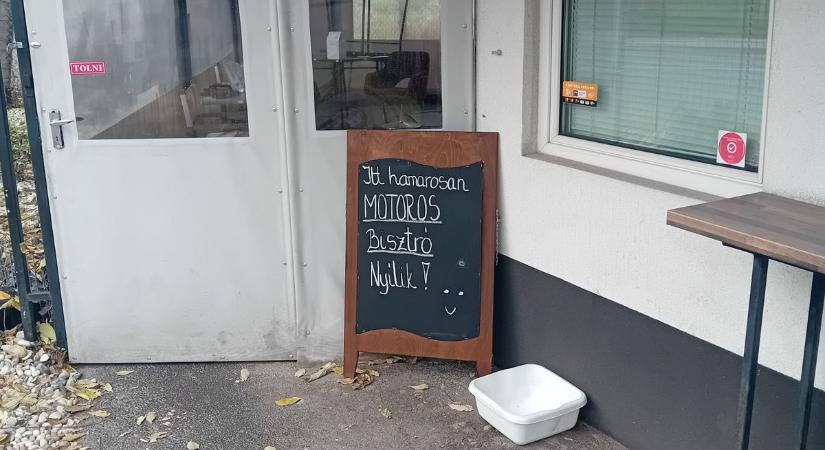 TOLNI
Itt hamarosan
MOTOROS
Bisztró
Nyílik !